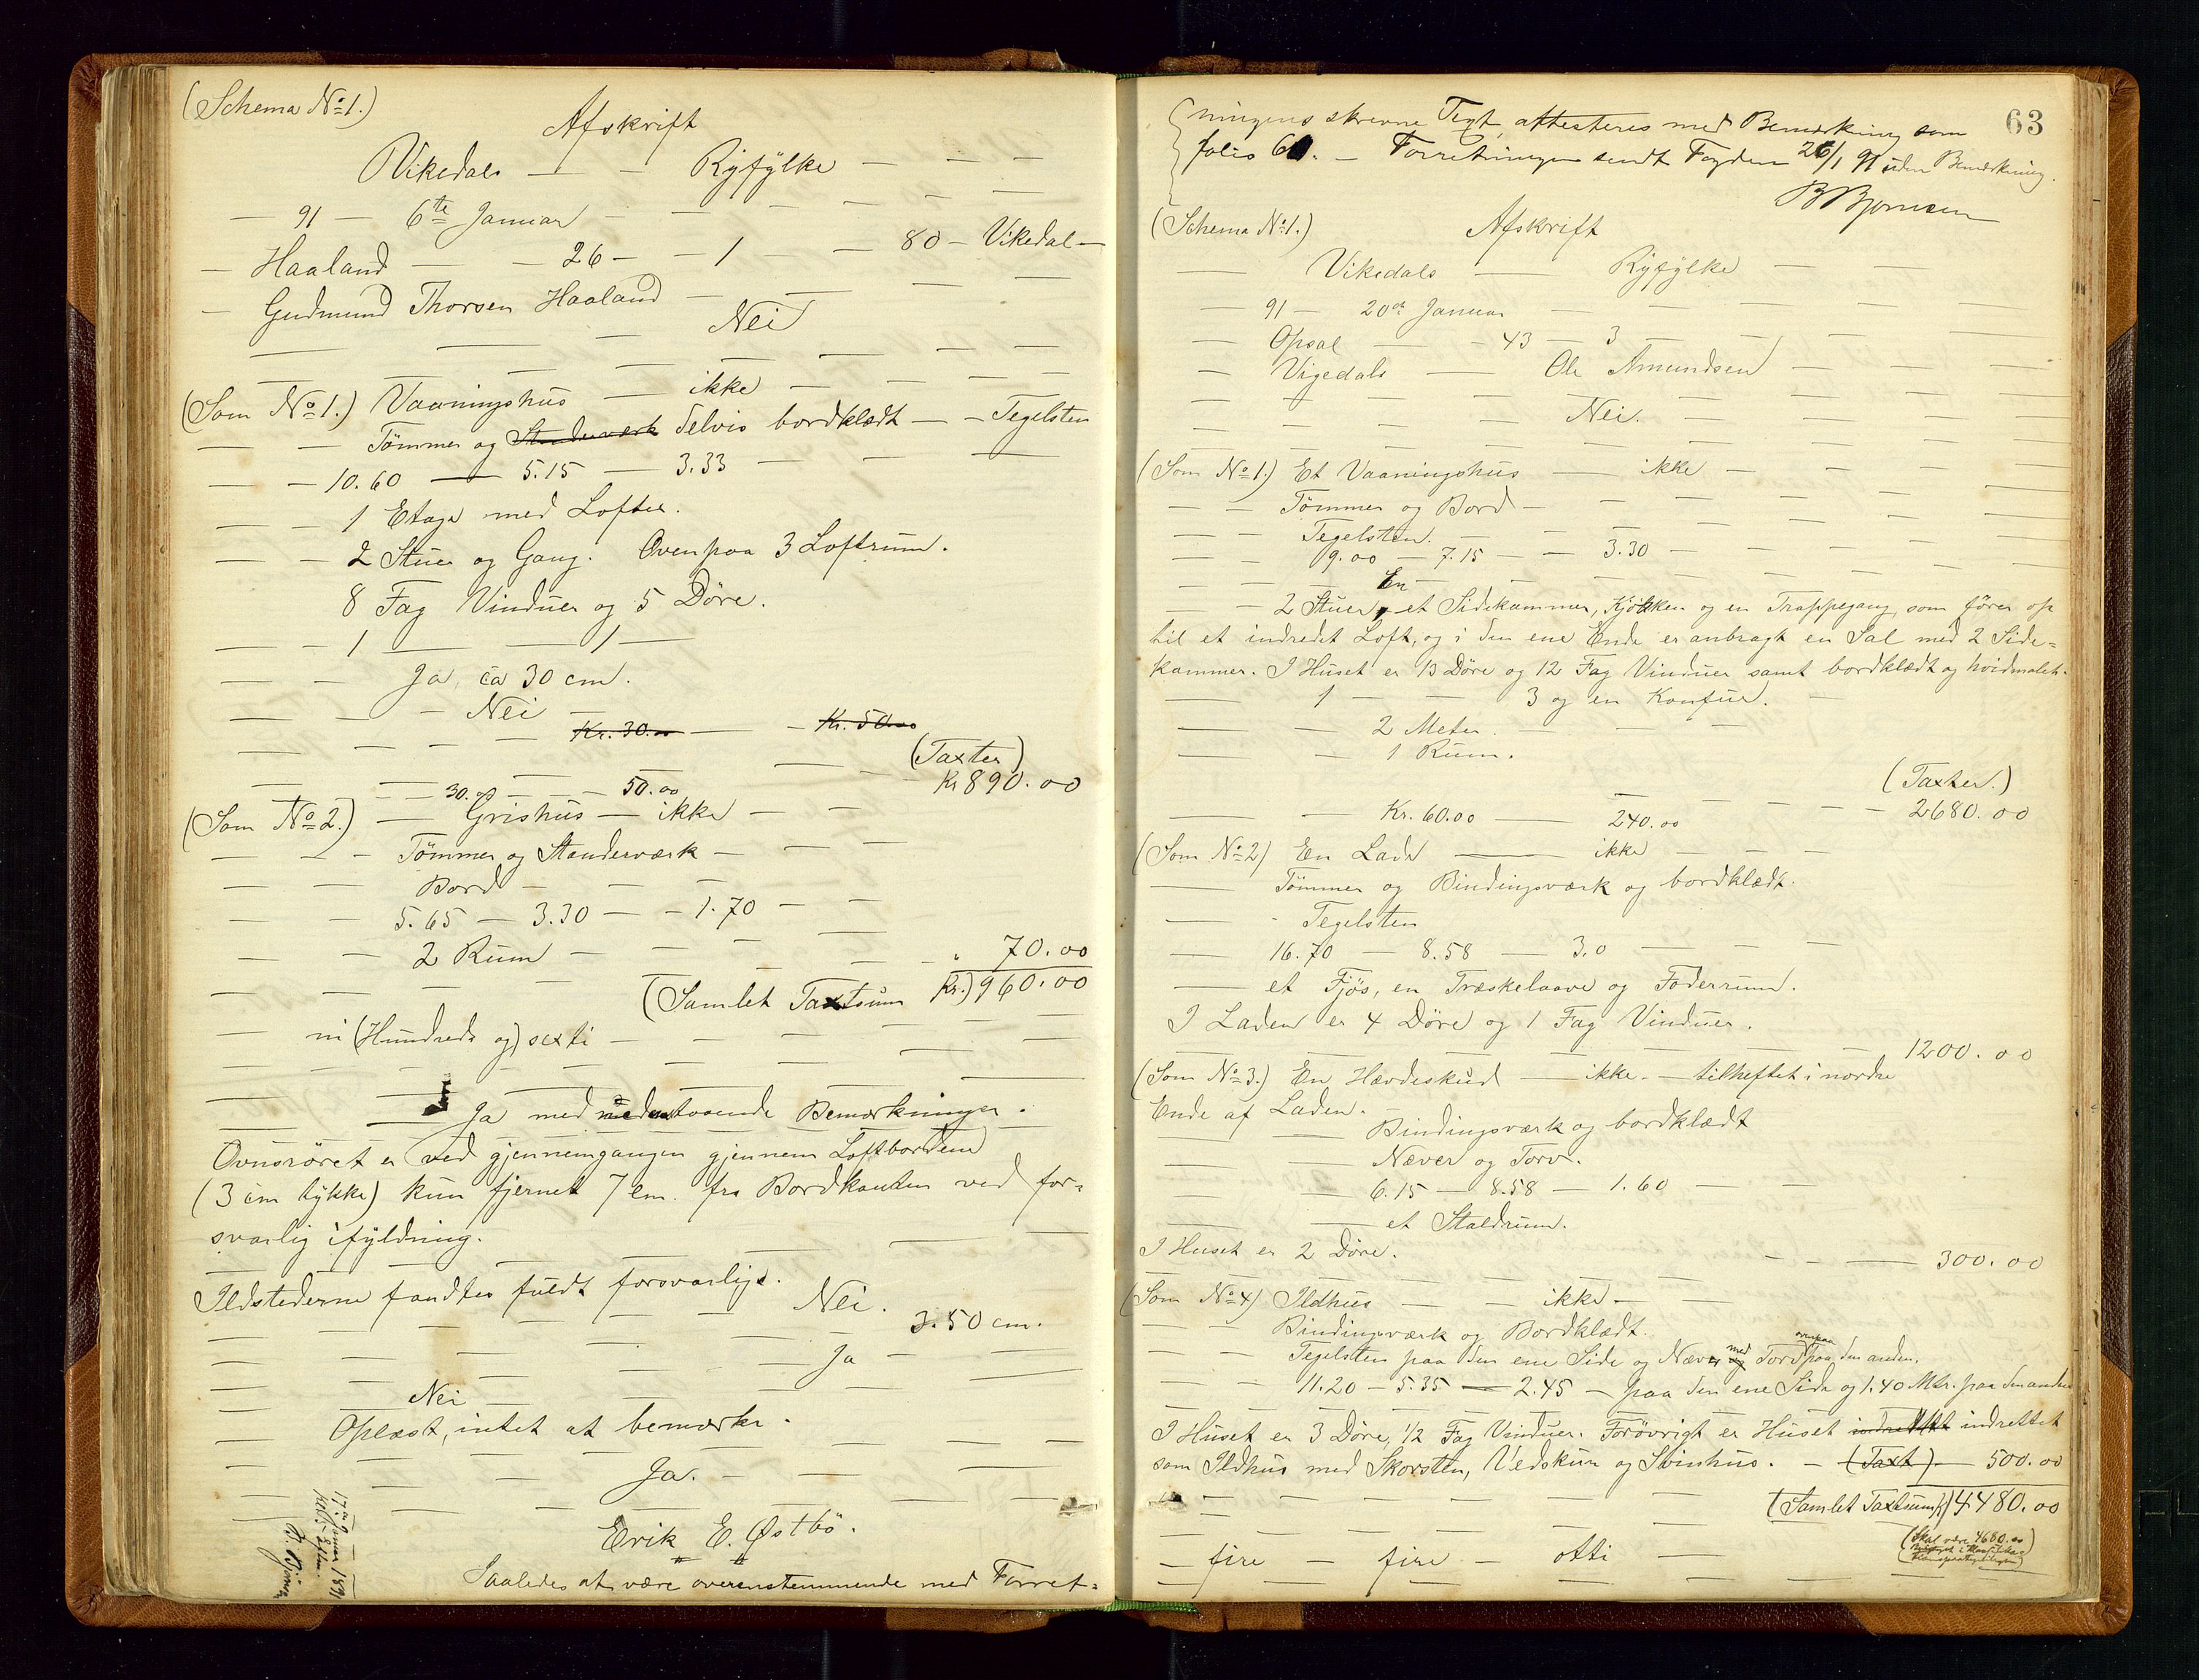 (Schema No 1.)
Afskrift
Vikedals — — Ryfylke — — —
— 91 — 6te Januar — — — — —
— Haaland — — 26 — — 1 — — 80 — Vikedal —
— Gudmund Thorsen Haaland — — — —
— — — Nei
(Som No 1.) Vaaningshus — ikke — — — —
— — Tømmer og Standerværk delvis bordklædt — — Tegelsten
— — 10.60 — 5.15 — 3.33 — — —
— — 1 Etage med Lofter.
— — 2 Stuer og Gang. Ovenpaa 3 Loftrum.
8 Fag Vinduer og 5 Døre.
— — 1 — — 1 —
— — Ja, ca 30 cm.
— — — Nei —
— — — — Kr. 30.00 — — Kr. 50.00
(Taxter)
— — 30.00 — — 50.00 — — — Kr 890.00
(Som No 2.) — Grishus — ikke — —
— — — Tømmer og Standerværk — — —
— — Bord — — —
— — 5.65 — 3.30 — — 1.70 — —
— — 2 Rum — — — — — " 70.00
(Samlet Taxtsum Kr.) 960.00
— ni (Hundrede og) sexti — — — — —
Ja med nedenstaaende Bemærkninger.
Ovnsrøret er ved gjennemgangen gjennem Loftbordene
(3 cm tykke) kun fjernet 7 cm. fra Bordkanten ved for=
svarlig ifyldning.
Ildstederne fandtes fuldt forsvarlige.
— — — — Nei.
3.50 cm.
— — — — Ja —
Nei
Oplæst, intet at bemærke.
— — Ja. — —
Erik E. Østbø.
17de Januar 1891
B. Bjørnsen
Saaledes at være overensstemmende med Forret=
63
ningens skrevne Text, attesteres med Bemærkning som
folio 60. — Forretningen sendt Fogden 26/1 91 uden Bemærkning.
B Bjørnsen
(Schema No 1.) Afskrift
— Vikedals — Ryfylke — —
— 91 — 20de Januar — —
— Opsal — — 43 — 3 — — —
— Vigedals — Ole Amundsen — —
— — — — Nei. — — —
(Som No 1.) Et Vaaningshus — ikke — —
— — Tømmer og Bord — — — —
— — Tegelsten. — — — —
— — 9.00 — 7.15 — — 3.30 — — —
— — — En — — — —
— — 2 Stuer, et Sidekammer, Kjøkken og en Trappegang, som fører op
til et indredet Loft, og i den ene Ende er anbragt en Sal med 2 Side=
kammer. I Huset er 13 Døre og 12 Fag Vinduer samt bordklædt og hvidmalet.
— 1 — — 3 og en Komfur. —
— — 2 Meter. — — —
— — 1 Rum.
(Taxter.)
— — Kr. 60.00 — 240.00 — — — — 2680.00
(Som No 2) En Lade — ikke — — —
— Tømmer og Bindingsværk og bordklædt.
— - Tegelsten
— 16.70 — 8.58 — 3.0 — — —
— et Fjøs, en Træskelaave og Foderrum.
I Laden er 4 Døre og 1 Fag Vinduer.
— — — — — 1200.00
(Som No 3.) En Hævdeskud — ikke. — tilheftet i nordre
Ende af Laden.
— — Bindingsværk og bordklædt
— — Næver og Torv.
— — 6.15 — 8.58 — 1.60 — —
— — et Staldrum.
I Huset er 2 Døre. — — — 300.00
(Som No 4) Ildhus — — ikke — —
— — Bindingsværk og Bordklædt.
ovenpaa
— — Tegelsten paa den ene Side og Næver og med Torv paa den anden.
— — 11.20 — 5.35 — 2.45 — paa den ene Side og 1.40 Mtr. paa den anden
I Huset er 3 Døre, 1/2 Fag Vinduer. Forøvrigt er Huset indredet indrettet
som Ildhus med Skorsten, Vedskur og Svinhus. — (Taxt) — 500.00
(Samlet Taxtsum Kr) 4480.00
(Skal være 4680.00
— fire — fire — otti —